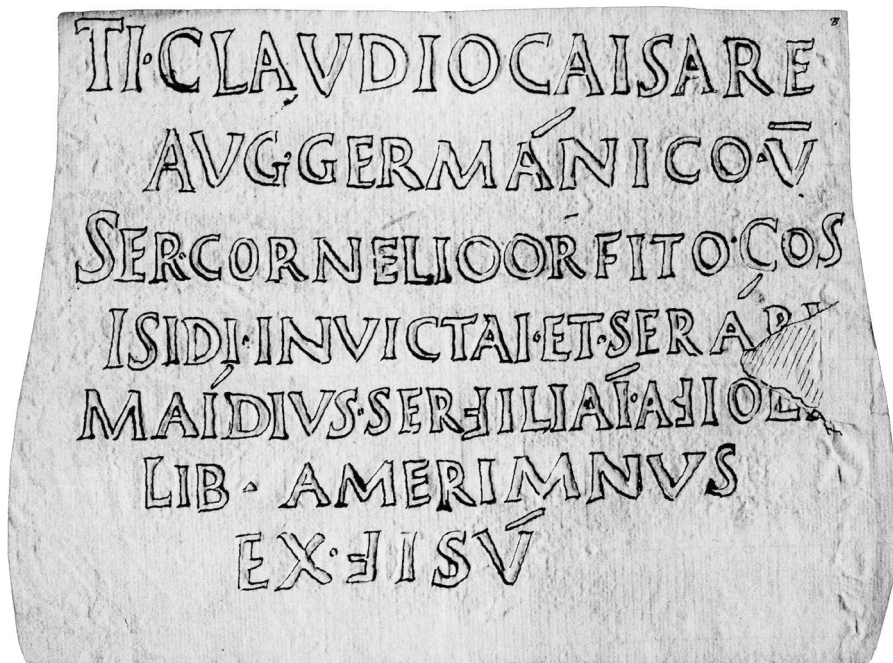 TI·CLAVDIO CAISARE
AVG·GERMÁNICO·V̄
SER·CORNELIO ORFITO·COS
ISIDI·INVICTAI·ET·SERÁPI
MAÍDIVS·SERℲILIAÍ·AℲIOL
LIB · AMERIMNVS
EX·ℲISV́